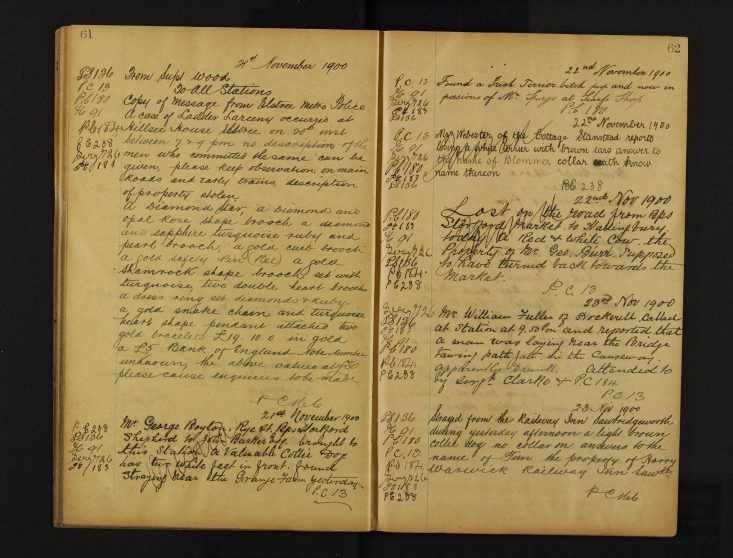 61
21st November 1900
PS136
PC 13
PC180
G 91
PC184
PC238
Serg 726
PC 183
From Supt Woods
To All Stations
Copy of Message from Elstree Metro Police
A case of Ladder Larceny occurred at
Hillsee House Elstree on 20th inst
between 7 & 9 pm no description of the
men who committed the same can be
given, please keep observation on main
Roads and early trains, description
of property stolen
a Diamond Star, a Diamond and
opal Rose shape brooch a diamond
and sapphire turquoise ruby and
pearl brooch, a gold curb brooch
a gold safety Pin a gold
Shamrock shape brooch set with
turquoise, two double heart broochs
a dress ring set diamonds & Ruby
a gold smoke chain and turquoise
heart shape pendant attached two
gold bracelets £19. 10. 0 in gold
a £5 Bank of England Note Number
unknown, the above values at £50
please cause enquiries to be made
21st November 1900
PC 238
PS136
G 91
Serg 726
PC 183
Mr George Boylon, Rye St, Bps Stortford
Shepherd to John Barker Esq. brought to
this Station a Valuable Collie Dog
has two white feet in front. found
Straying near the Grange Farm yesterday
P.C. 13
62
22nd November 1900
P.C. 13
G 91
Serg 726
PC 183
PS136
Found a Irish Terrier bitch pup and now in
possion of Mr Spurge at Shop
PC 180
22nd November 1900
P.C. 13
G 91
Serg 726
PC 180
PC 183
PS136
Mr Webster of the Cottage Stansted reports
losing a white terrier with brown ears answer to
the name of Blommer collar with
name thereon
PC 238
22nd Nov 1900
PC180
PC 183
G 91
Serg 726
PS136
PC184
PC238
Lost on the road from Bps
Stortford Market to Hallingbury
today a Red & White Cow. the
Property of Mr Geo. Burr. Supposed
to have turned back towards the
Market.
P.C. 13
23rd Nov 1900
Serg 726
PS136
PC 183
G 91
PC180
PC184
PC 238
Mr William Fuller of Hockerill Called
at Station at 9.50 Pm and reported that
a man was laying near the Bridge
path in the Causeway.
apparently drunk. attended to
by Sergt Clarke & P.C. 184
P.C 13
23 Nov 1900
PS136
G 91
PC180
P.C. 13
PC 184
Serg 726
PC 183
PC 238
Strayed from the Railway Inn Sawbridgeworth
during yesterday afternoon a light brown
collie dog no collar on answers to the
name of the property of Harry
Warwick Railway Inn